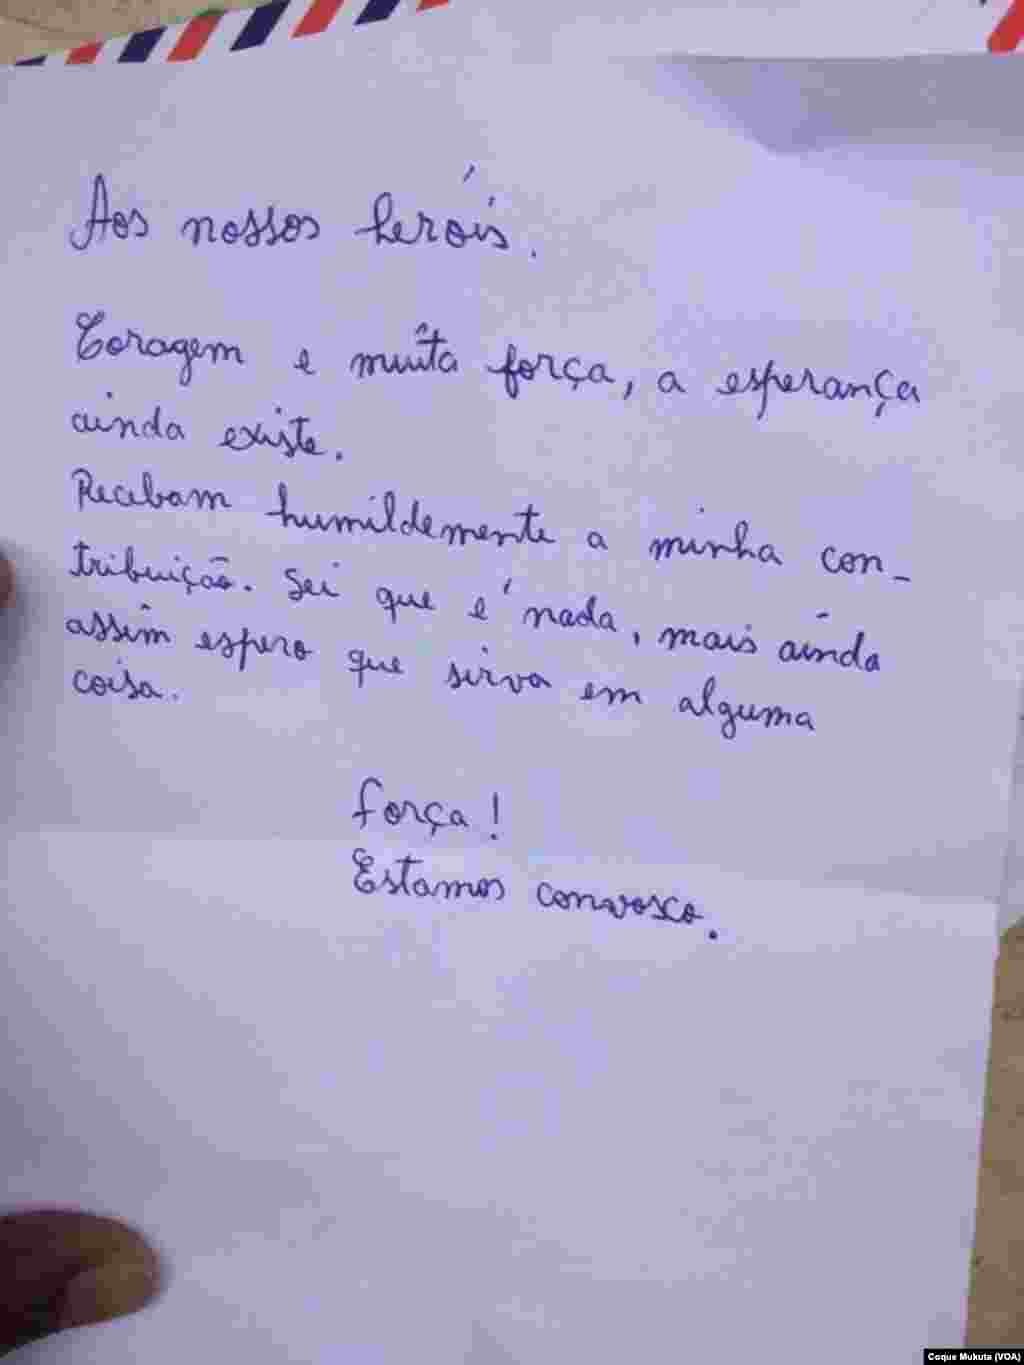 Aos nossos heróis.
Coragem e muita força, a esperança
ainda existe.
Recebam humildemente a minha con-
tribuição. Sei que é nada, mais ainda
assim espero que sirva em alguma
coisa.
força!
Estamos convosco.
Coque Mukuta (VOA)